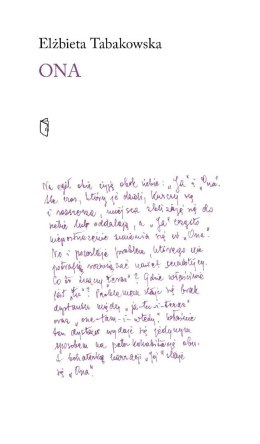 Elżbieta Tabakowska
ONA
No cóż, obie żyją obok siebie: „Ja" i „Ona".
Ale czas, który je dzieli, kurczy się
i rozszerza, miejsca zbliżają się do
siebie lub oddalają, a „Ja" często
niepostrzeżenie zmienia się w „Ona".
No i pozostaje problem, którego nie
potrafią rozwiązać nawet semantycy.
Co to znaczy „teraz"? Gdzie właściwie
jest „tu"? Problemem staje się brak
dystansu między „ja-tu-i-teraz"
oraz „ona-tam-i-wtedy". Właśnie
ten dystans wydaje się jedynym
sposobem na pokojową kohabitację obu.
I bohaterką narracji „Ja" staje
się „Ona".